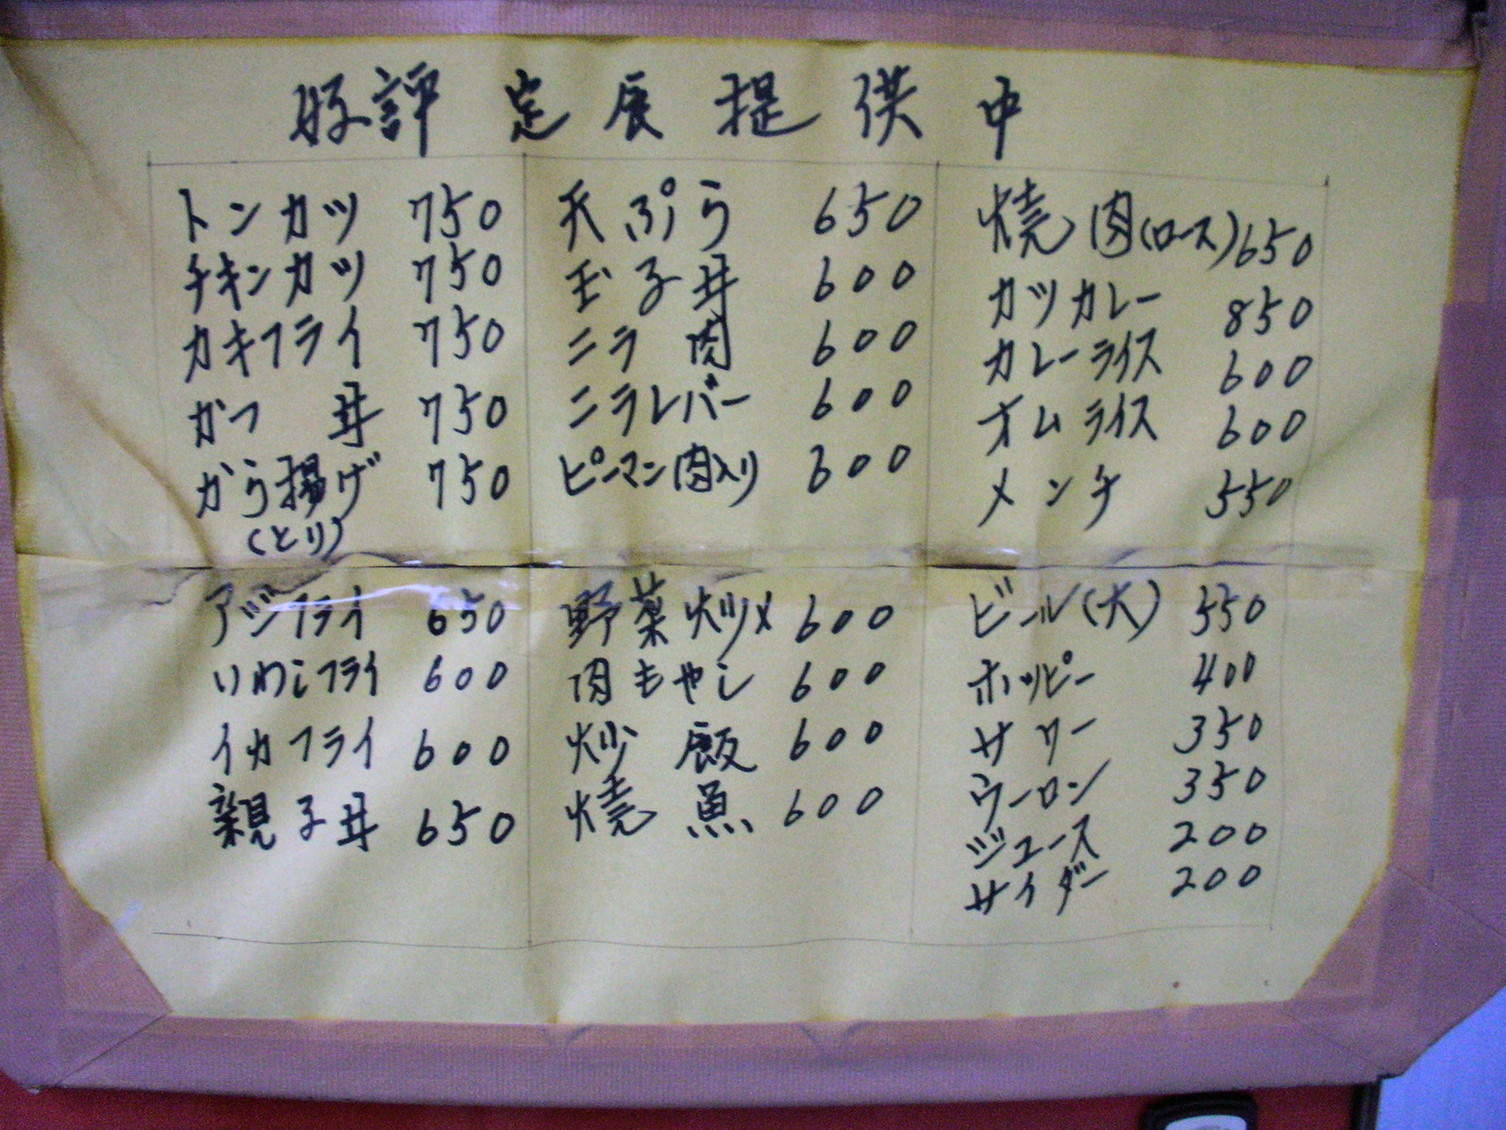 好評定食提供中
トンカツ 750
チキンカツ 750
カキフライ 750
かつ丼 750
から揚げ 750
(とり)
アジフライ 650
いわしフライ 600
イカフライ 600
親子丼 650
天ぷら 650
玉子丼 600
ニラ肉 600
ニラレバー 600
ピーマン肉入り 600
野菜炒メ 600
肉もやし 600
炒飯 600
焼魚 600
焼肉(ロース) 650
カツカレー 850
カレーライス 600
オムライス 600
メンチ 550
ビール(大) 550
ホッピー 400
サワー 350
ウーロン 350
ジュース 200
サイダー 200